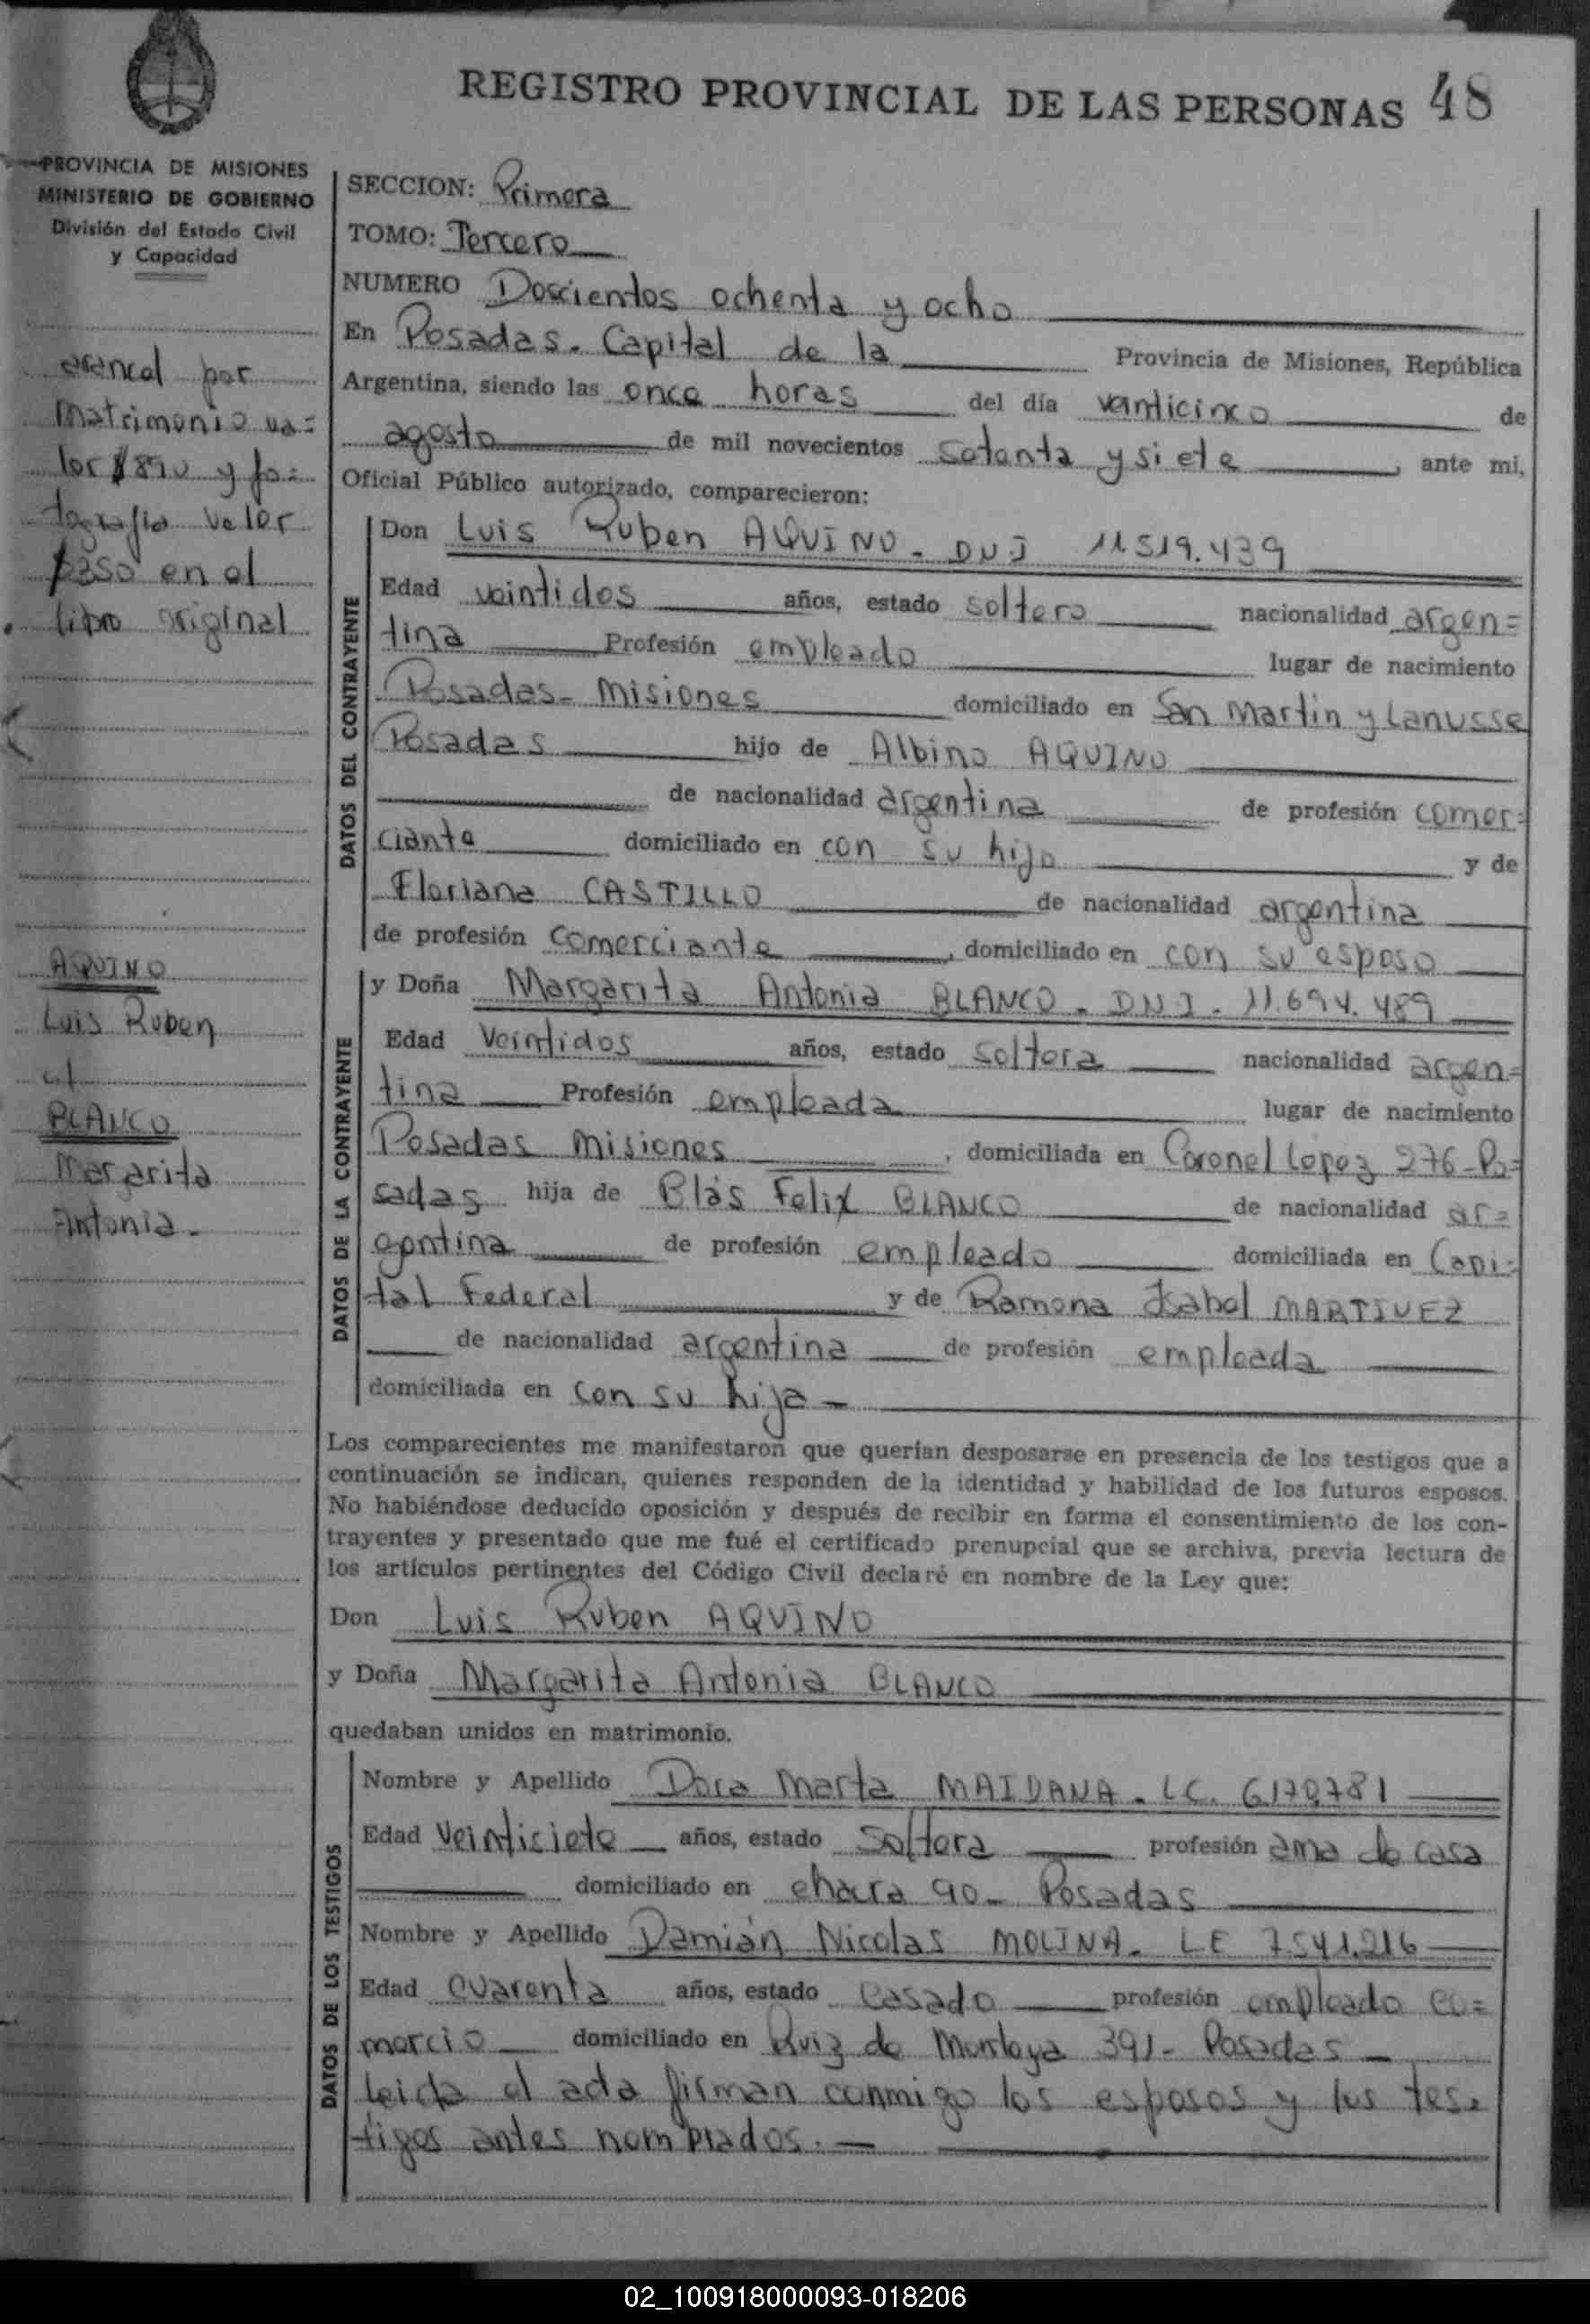 REGISTRO PROVINCIAL DE LAS PERSONAS 48
PROVINCIA DE MISIONES
MINISTERIO DE GOBIERNO
División del Estado Civil
y Capacidad
arancel por
matrimonio va=
lor $890 y fo=
tografia valor
$350 en el
libro original
AQUINO
Luis Ruben
c/
BLANCO
Margarita
Antonia.
SECCION: Primera
TOMO: Tercero
NUMERO Doscientos ochenta y ocho
En Posadas. Capital de la Provincia de Misiones, República
Argentina, siendo las once horas del día veinticinco de
agosto de mil novecientos setenta y siete, ante mi,
Oficial Público autorizado, comparecieron:
DATOS DEL CONTRAYENTE
Don Luis Ruben AQUINO - DNI 11.519.439
Edad veintidos años, estado soltero nacionalidad argen=
tina Profesión empleado lugar de nacimiento
Posadas - Misiones domiciliado en San Martin y Lanusse
Posadas hijo de Albino AQUINO
de nacionalidad argentina de profesión comer=
ciante domiciliado en con su hijo y de
Floriana CASTILLO de nacionalidad argentina
de profesión comerciante, domiciliado en con su esposo
DATOS DE LA CONTRAYENTE
y Doña Margarita Antonia BLANCO - DNI - 11.694.489
Edad veintidos años, estado soltera nacionalidad argen=
tina Profesión empleada lugar de nacimiento
Posadas Misiones, domiciliada en Coronel Lopez 276 - Po=
sadas hija de Blás Felix BLANCO de nacionalidad ar=
gentina de profesión empleado domiciliada en Capi=
tal Federal y de Ramona Isabel MARTINEZ
de nacionalidad argentina de profesión empleada
domiciliada en con su hija -
Los comparecientes me manifestaron que querían desposarse en presencia de los testigos que a
continuación se indican, quienes responden de la identidad y habilidad de los futuros esposos.
No habiéndose deducido oposición y después de recibir en forma el consentimiento de los con-
trayentes y presentado que me fué el certificado prenupcial que se archiva, previa lectura de
los artículos pertinentes del Código Civil declaré en nombre de la Ley que:
Don Luis Ruben AQUINO
y Doña Margarita Antonia BLANCO
quedaban unidos en matrimonio.
DATOS DE LOS TESTIGOS
Nombre y Apellido Dora Marta MAIDANA - LC. 6.170.781
Edad Veintisiete años, estado soltera profesión ama de casa
domiciliado en chacra 90 - Posadas
Nombre y Apellido Damián Nicolas MOLINA - LE 7.541.216
Edad cuarenta años, estado casado profesión empleado co=
mercio domiciliado en Ruiz de Montoya 391 - Posadas -
Leida el acta firman conmigo los esposos y los tes=
tigos antes nombrados. -
02_100918000093-018206